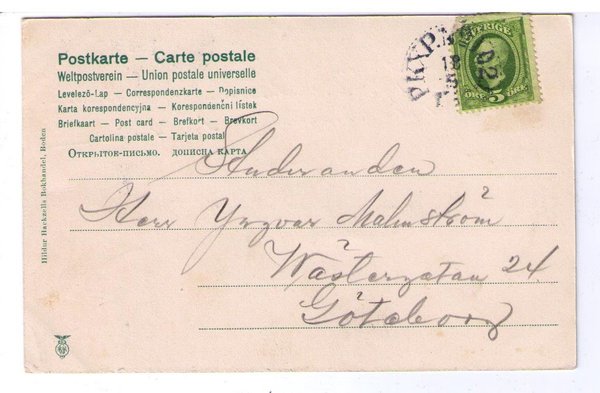 Postkarte — Carte postale
Weltpostverein — Union postale universelle
Levelező-Lap — Correspondenzkarte — Dopisnice
Karta korespondencyjna — Korespondenční lístek
Briefkaart — Post card — Brefkort — Brevkort
Cartolina postale — Tarjeta postal
Открытое-письмо. дописна карта
SVERIGE
ÖRE 5 ÖRE
PKXP.N
Studeranden
Herr Yngver Malmström
Wästergatan 24
Göteborg
Hildur Hackzells Bokhandel, Boden